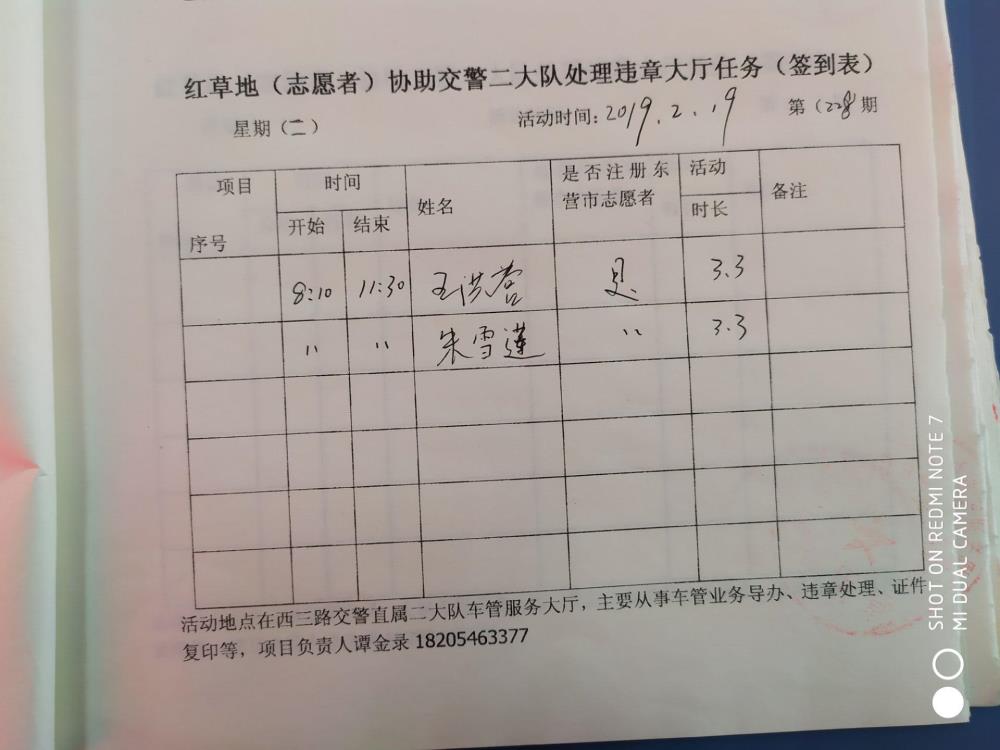 红草地（志愿者）协助交警二大队处理违章大厅任务（签到表）
星期（二） 活动时间：2019.2.19 第（228期
项目 时间 姓名 是否注册东营市志愿者 活动时长 备注
序号 开始 结束
8:10 11:30 王洪营 是 3.3
" " 朱雪莲 " 3.3
活动地点在西三路交警直属二大队车管服务大厅，主要从事车管业务导办、违章处理、证件
复印等，项目负责人谭金录 18205463377
SHOT ON REDMI NOTE 7
MI DUAL CAMERA